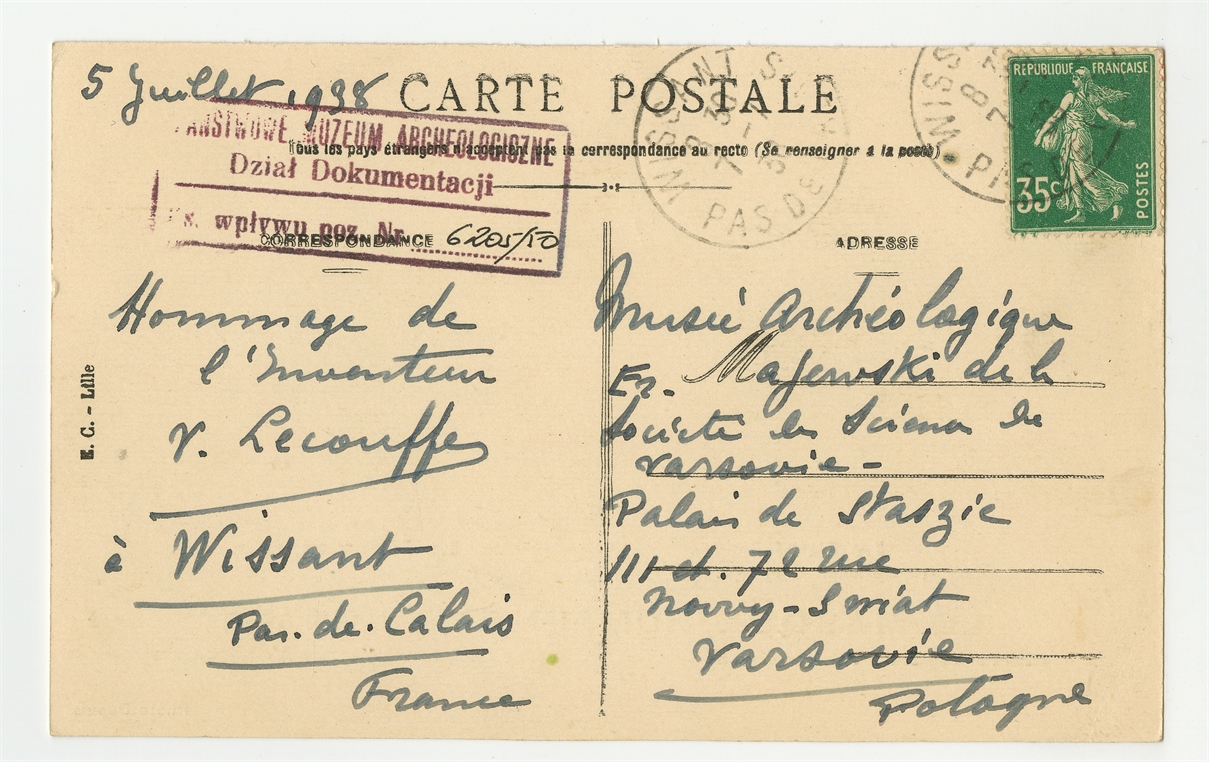 5 Juillet 1938
CARTE POSTALE
Tous les pays étrangers n'acceptent pas la correspondance au recto (Se renseigner à la poste)
PAŃSTWOWE MUZEUM ARCHEOLOGICZNE
Dział Dokumentacji
wpływu poz. Nr. 6205/50
CORRESPONDANCE
ADRESSE
WISSANT
PAS DE
REPUBLIQUE FRANÇAISE
35c
POSTES
Hommage de
l'Inventeur
V. Lecouffe
à Wissant
Pas-de-Calais
France
E. C. - Lille
Musée Archéologique
Er. Majewski de la
Société des Sciences de
Varsovie -
Palais de Staszic
III et. 72 rue
Nowy-Swiat
Varsovie
Pologne